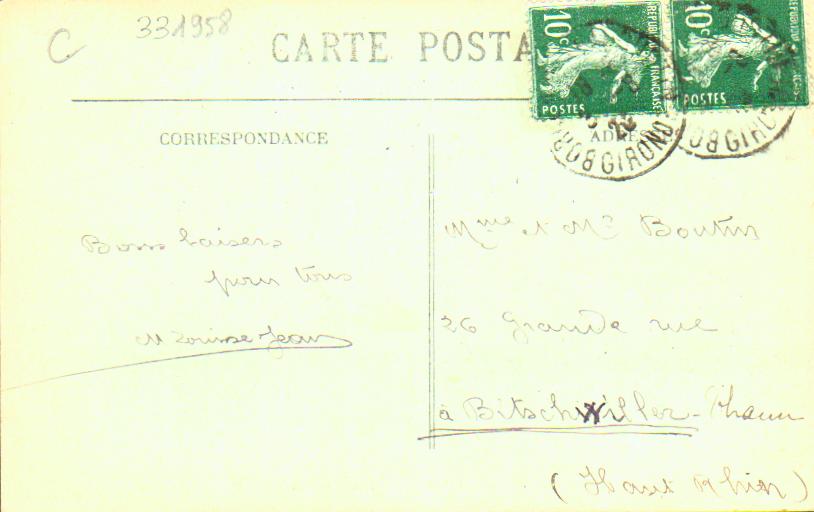 C
331958
CARTE POSTA
10c
REPUBLIQUE FRANÇAISE
POSTES
10c
POSTES
22
GIRONDE
GIRO
CORRESPONDANCE
ADRES
Bons baisers
pour tous
M Louise Jean
Mme et Mr Boutin
26 Grande rue
à Bitschwiller-Thann
(Haut Rhin)